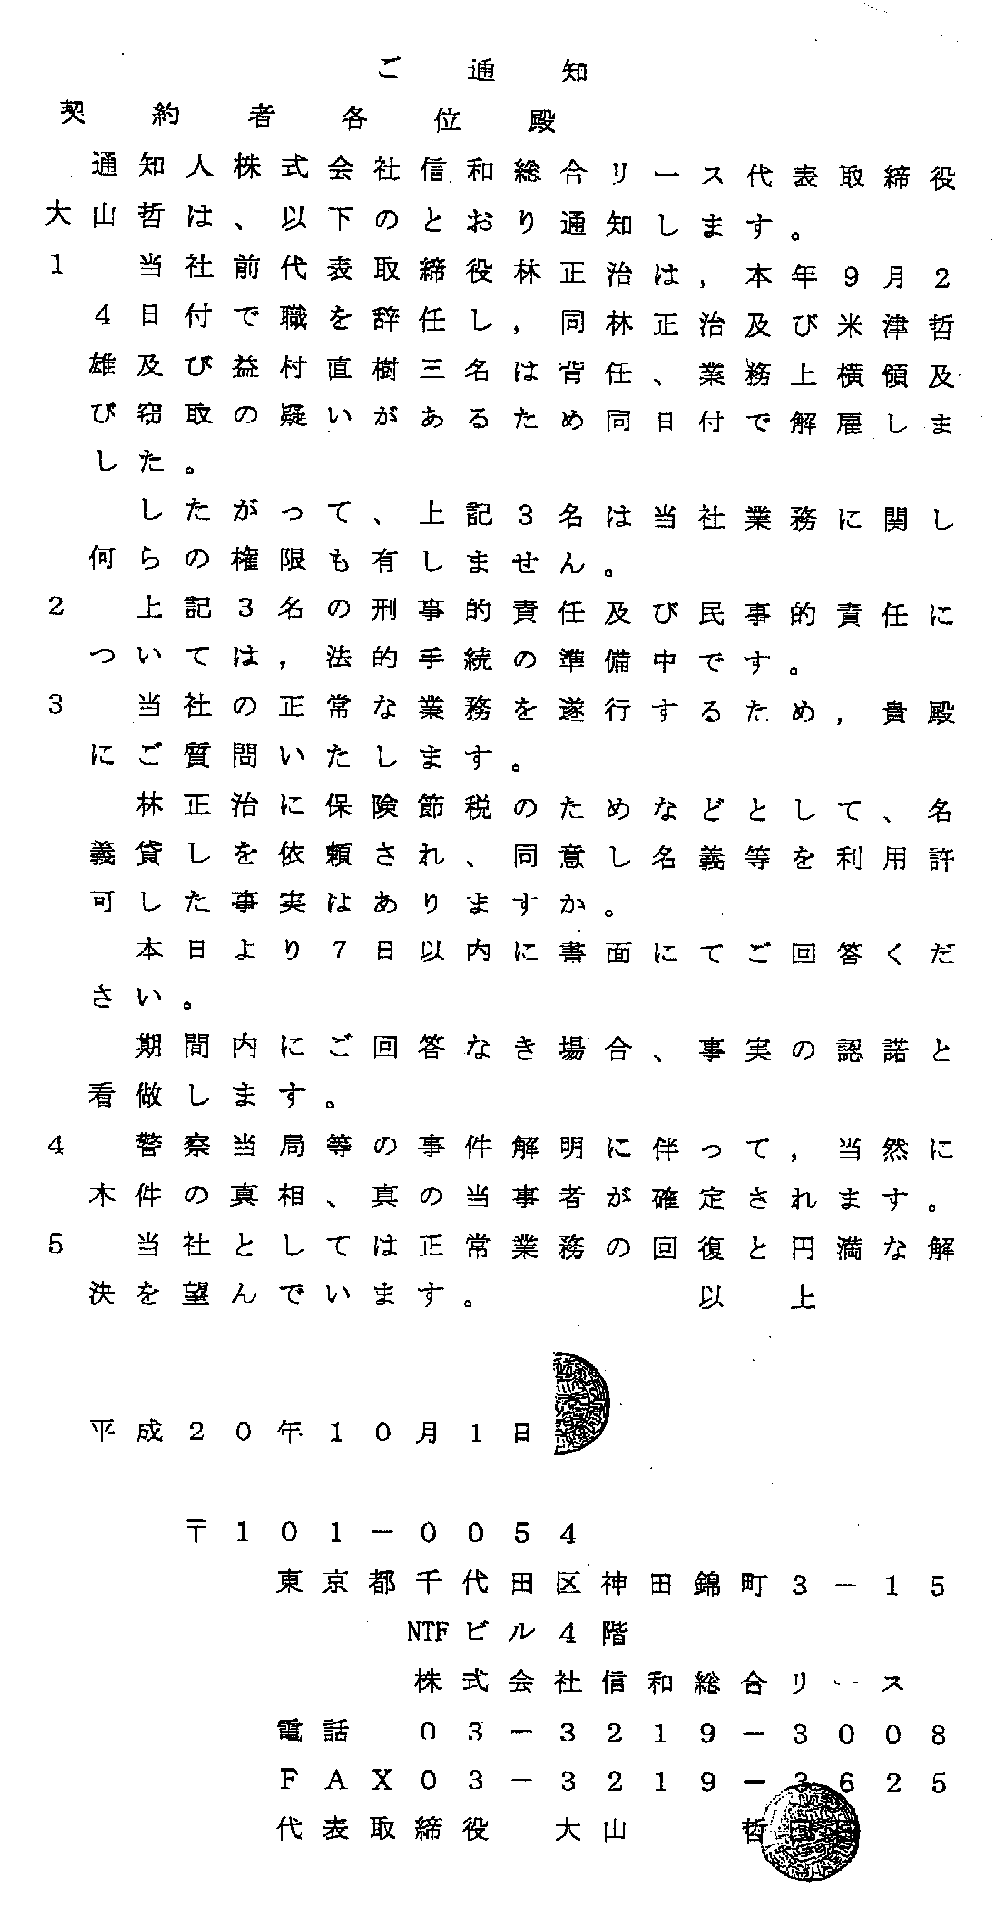 ご通知
契約者各位殿
通知人株式会社信和総合リース代表取締役
大山哲は、以下のとおり通知します。
1 当社前代表取締役林正治は，本年9月2
4日付で職を辞任し，同林正治及び米津哲
雄及び益村直樹三名は背任、業務上横領及
び窃取の疑いがあるため同日付で解雇しま
した。
したがって、上記3名は当社業務に関し
何らの権限も有しません。
2 上記3名の刑事的責任及び民事的責任に
ついては，法的手続の準備中です。
3 当社の正常な業務を遂行するため，貴殿
にご質問いたします。
林正治に保険節税のためなどとして、名
義貸しを依頼され、同意し名義等を利用許
可した事実はありますか。
本日より7日以内に書面にてご回答くだ
さい。
期間内にご回答なき場合、事実の認諾と
看做します。
4 警察当局等の事件解明に伴って，当然に
本件の真相、真の当事者が確定されます。
5 当社としては正常業務の回復と円満な解
決を望んでいます。 以上
平成20年10月1日
〒101-0054
東京都千代田区神田錦町3-15
NTFビル4階
株式会社信和総合リース
電話 03-3219-3008
FAX03-3219-3625
代表取締役 大山 哲